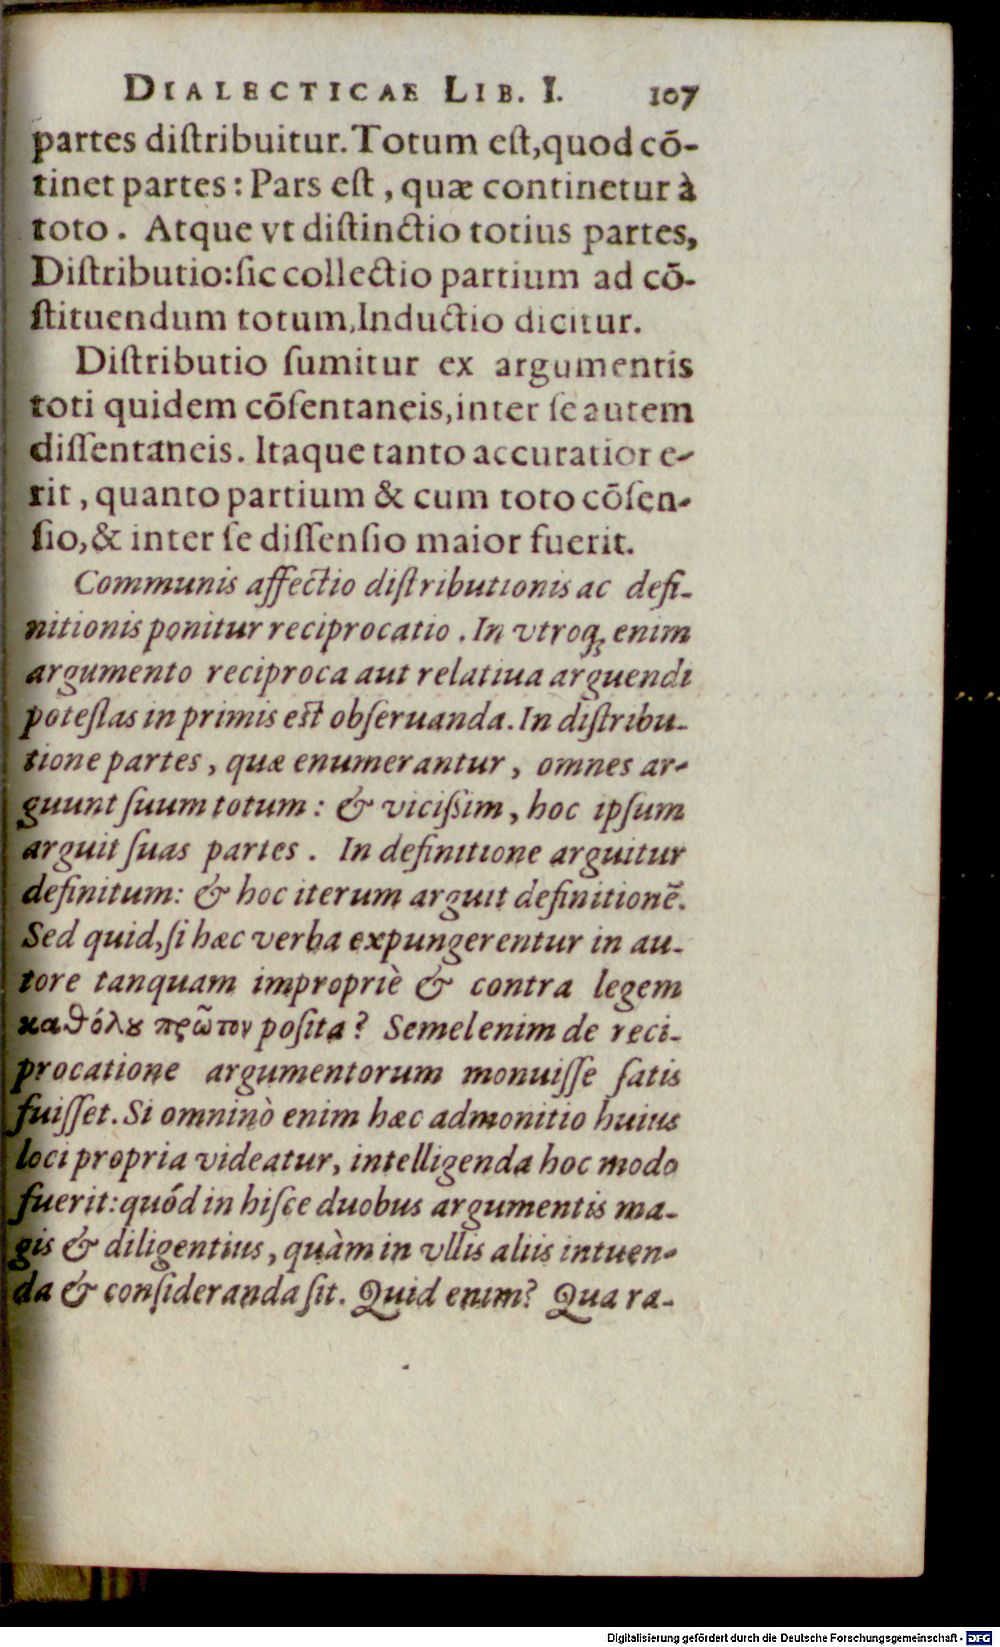 DIALECTICAE LIB. I. 107
partes diſtribuitur. Totum eſt, quod cō-
tinet partes: Pars eſt, quæ continetur à
toto. Atque vt diſtinctio totius partes,
Diſtributio: ſic collectio partium ad cō-
ſtituendum totum, Inductio dicitur.
Diſtributio ſumitur ex argumentis
toti quidem cōſentaneis, inter ſe autem
diſſentaneis. Itaque tanto accuratior e-
rit, quanto partium & cum toto cōſen-
ſio, & inter ſe diſſenſio maior fuerit.
Communis affectio diſtributionis ac defi-
nitionis ponitur reciprocatio. In vtroq; enim
argumento reciproca aut relatiua arguendi
poteſtas in primis eſt obſeruanda. In diſtribu-
tione partes, quæ enumerantur, omnes ar-
guunt ſuum totum: & viciſsim, hoc ipſum
arguit ſuas partes. In definitione arguitur
definitum: & hoc iterum arguit definitionē.
Sed quid, ſi hæc verba expungerentur in au-
tore tanquam impropriè & contra legem
καθόλȣ πρῶτον poſita? Semel enim de reci-
procatione argumentorum monuiſſe ſatis
fuiſſet. Si omninò enim hæc admonitio huius
loci propria videatur, intelligenda hoc modo
fuerit: quód in hiſce duobus argumentis ma-
gis & diligentius, quàm in vllis aliis intuen-
da & conſideranda ſit. Quid enim? Qua ra-
Digitalisierung gefördert durch die Deutsche Forschungsgemeinschaft - DFG